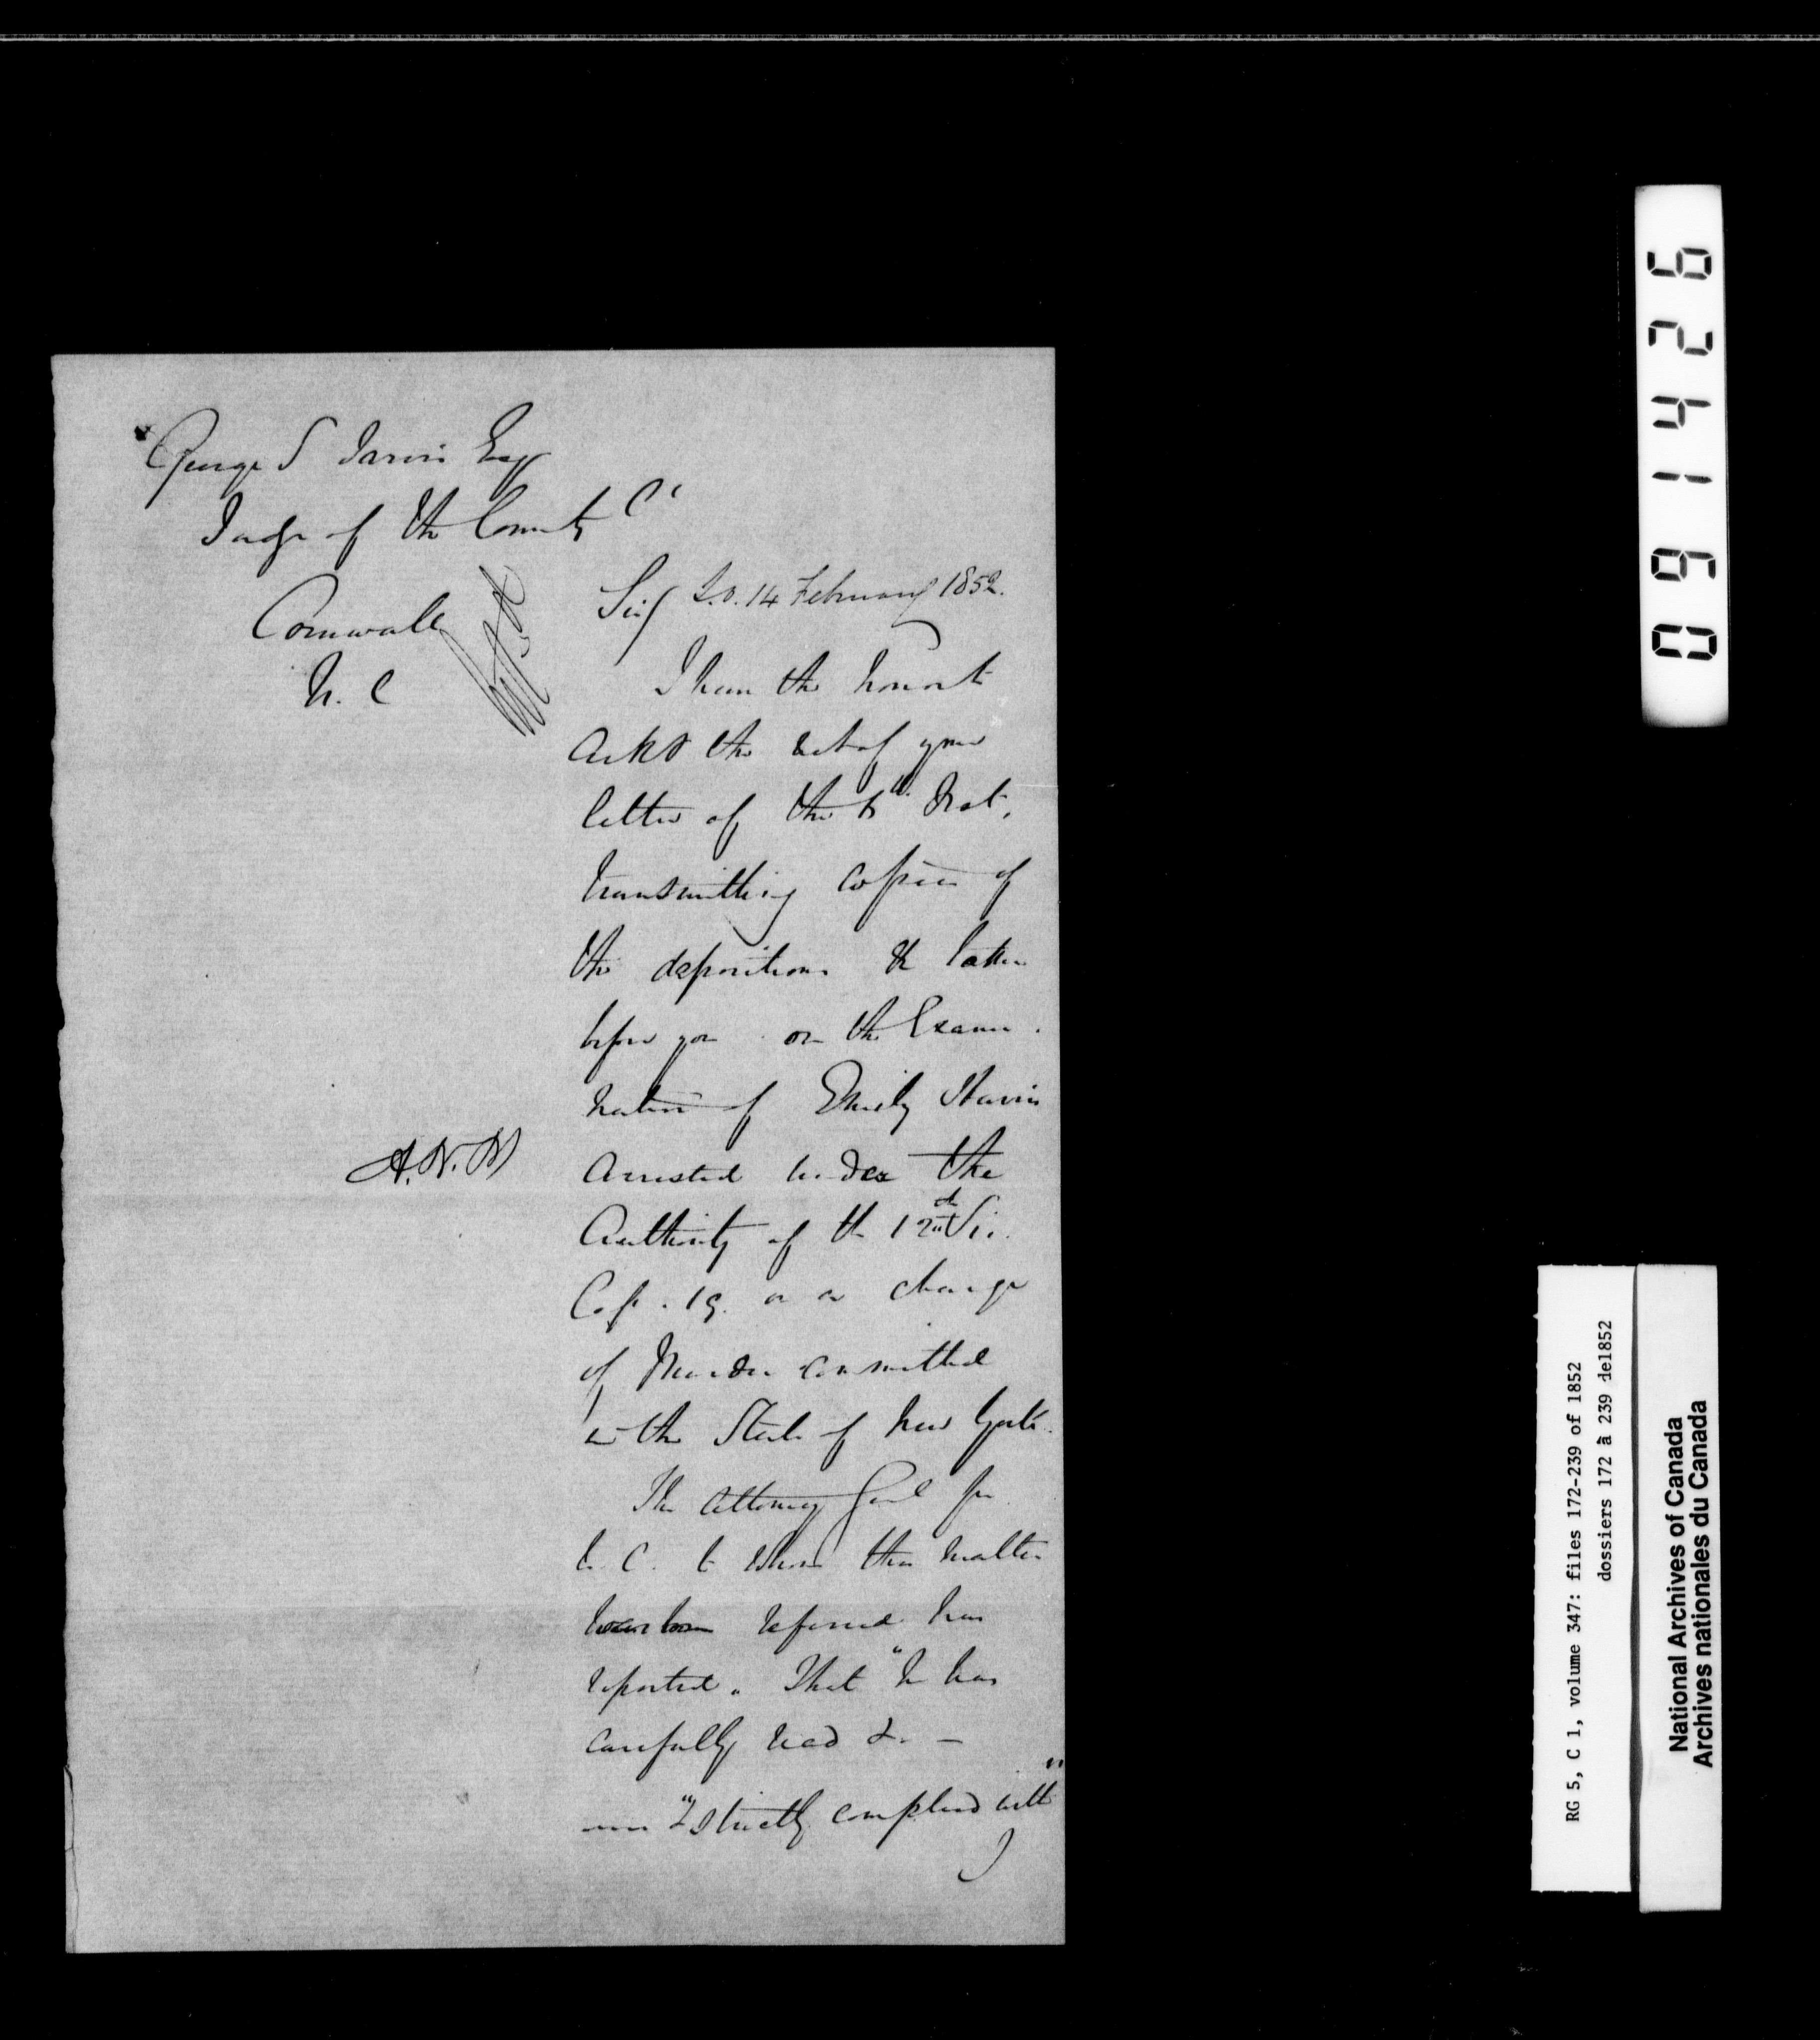 George S Jarvis Esq
Judge of the County Ct
Cornwall
U. C
Sir/ S.O. 14 February 1852.
I have the honor to
Ackd the rect of your
letter of the 6th Inst,
transmitting copies of
the depositions &c taken
before you on the Exami-
nation of Emily Harris
Arrested under the
Authority of the 12th Vic.
Cap. 19. on a charge
of Murder committed
in the State of New York.
The Attorney Genl for
U. C. to whom this matter
has been referred has
reported. That "he has
carefully read &c. —
"& strictly complied with"
A.N.M
091426
RG 5, C 1, volume 347: files 172-239 of 1852
dossiers 172 à 239 de1852
National Archives of Canada
Archives nationales du Canada